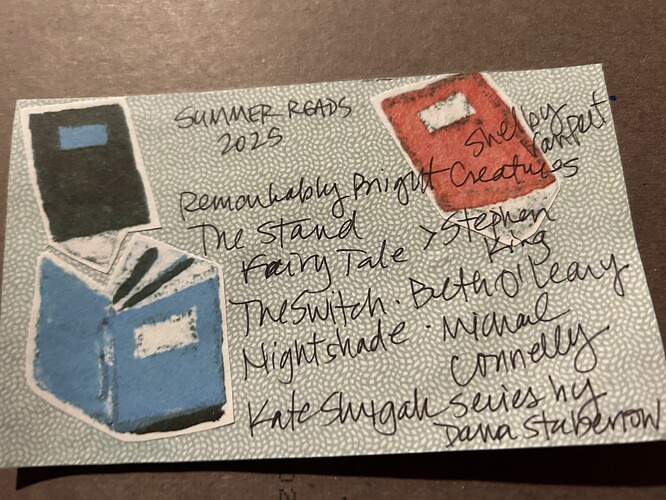 SUMMER READS
2025
Remarkably Bright Creatures
Shelby
Van Pelt
The Stand
Fairy Tale > Stephen
King
The Switch · Beth O'Leary
Nightshade · Michael
Connelly
Kate Shugak series by
Dana Stabenow